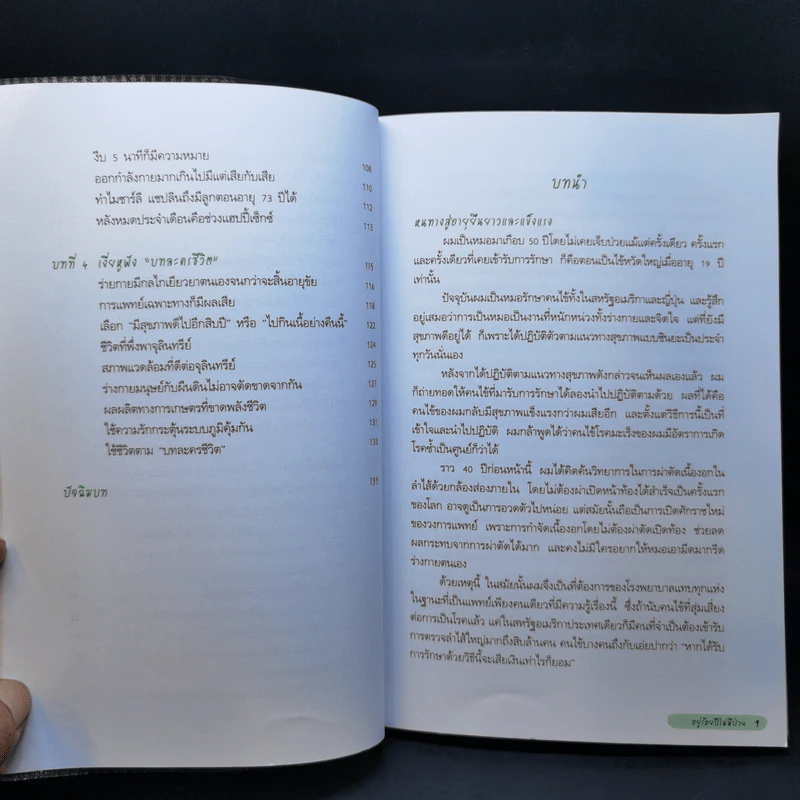 งีบ 5 นาทีก็มีความหมาย 108
ออกกำลังกายมากเกินไปมีแต่เสียกับเสีย 110
ทำไมชาร์ลี แชปลินถึงมีลูกตอนอายุ 73 ปีได้ 112
หลังหมดประจำเดือนคือช่วงแฮปปี้เซ็กซ์ 113
บทที่ 4 เงี่ยหูฟัง "บทละครชีวิต" 115
ร่างกายมีกลไกเยียวยาตนเองจนกว่าจะสิ้นอายุขัย 116
การแพทย์เฉพาะทางก็มีผลเสีย 118
เลือก "มีสุขภาพดีไปอีกสิบปี" หรือ "ไปกินเนื้อย่างคืนนี้" 122
ชีวิตที่พึ่งพาจุลินทรีย์ 124
สภาพแวดล้อมที่ดีต่อจุลินทรีย์ 125
ร่างกายมนุษย์กับผืนดินไม่อาจตัดขาดจากกัน 127
ผลผลิตทางการเกษตรที่ขาดพลังชีวิต 129
ใช้ความรักกระตุ้นระบบภูมิคุ้มกัน 130
ใช้ชีวิตตาม "บทละครชีวิต" 133
ปัจฉิมบท 135
บทนำ
หนทางสู่อายุยืนยาวและแข็งแรง
ผมเป็นหมอมาเกือบ 50 ปีโดยไม่เคยเจ็บป่วยแม้แต่ครั้งเดียว ครั้งแรก
และครั้งเดียวที่เคยเข้ารับการรักษา ก็คือตอนเป็นไข้หวัดใหญ่เมื่ออายุ 19 ปี
เท่านั้น
ปัจจุบันผมเป็นหมอรักษาคนไข้ทั้งในสหรัฐอเมริกาและญี่ปุ่น และรู้สึก
อยู่เสมอว่าการเป็นหมอเป็นงานที่หนักหน่วงทั้งร่างกายและจิตใจ แต่ที่ยังมี
สุขภาพดีอยู่ได้ ก็เพราะได้ปฏิบัติตัวตามแนวทางสุขภาพแบบชินยะเป็นประจำ
ทุกวันนั่นเอง
หลังจากได้ปฏิบัติตามแนวทางสุขภาพดังกล่าวจนเห็นผลเองแล้ว ผม
ก็ถ่ายทอดให้คนไข้ที่มารับการรักษาได้ลองนำไปปฏิบัติตามด้วย ผลที่ได้คือ
คนไข้ของผมกลับมีสุขภาพแข็งแรงกว่าผมเสียอีก และตั้งแต่วิธีการนี้เป็นที่
เข้าใจและนำไปปฏิบัติ ผมกล้าพูดได้ว่าคนไข้โรคมะเร็งของผมมีอัตราการเกิด
โรคซ้ำเป็นศูนย์ก็ว่าได้
ราว 40 ปีก่อนหน้านี้ ผมได้คิดค้นวิทยาการในการผ่าตัดเนื้องอกใน
ลำไส้ด้วยกล้องส่องภายใน โดยไม่ต้องผ่าเปิดหน้าท้องได้สำเร็จเป็นครั้งแรก
ของโลก อาจดูเป็นการอวดตัวไปหน่อย แต่สมัยนั้นถือเป็นการเปิดศักราชใหม่
ของวงการแพทย์ เพราะการกำจัดเนื้องอกโดยไม่ต้องผ่าตัดเปิดท้อง ช่วยลด
ผลกระทบจากการผ่าตัดได้มาก และคงไม่มีใครอยากให้หมอเอามีดมากรีด
ร่างกายตนเอง
ด้วยเหตุนี้ ในสมัยนั้นผมจึงเป็นที่ต้องการของโรงพยาบาลแทบทุกแห่ง
ในฐานะที่เป็นแพทย์เพียงคนเดียวที่มีความรู้เรื่องนี้ ซึ่งถ้านับคนไข้ที่สุ่มเสี่ยง
ต่อการเป็นโรคแล้ว แค่ในสหรัฐอเมริกาประเทศเดียวก็มีคนที่จำเป็นต้องเข้ารับ
การตรวจลำไส้ใหญ่มากถึงสิบล้านคน คนไข้บางคนถึงกับเอ่ยปากว่า "หากได้รับ
การรักษาด้วยวิธีนี้จะเสียเงินเท่าไรก็ยอม"
อยู่ร้อยปีไม่มีป่วย 9